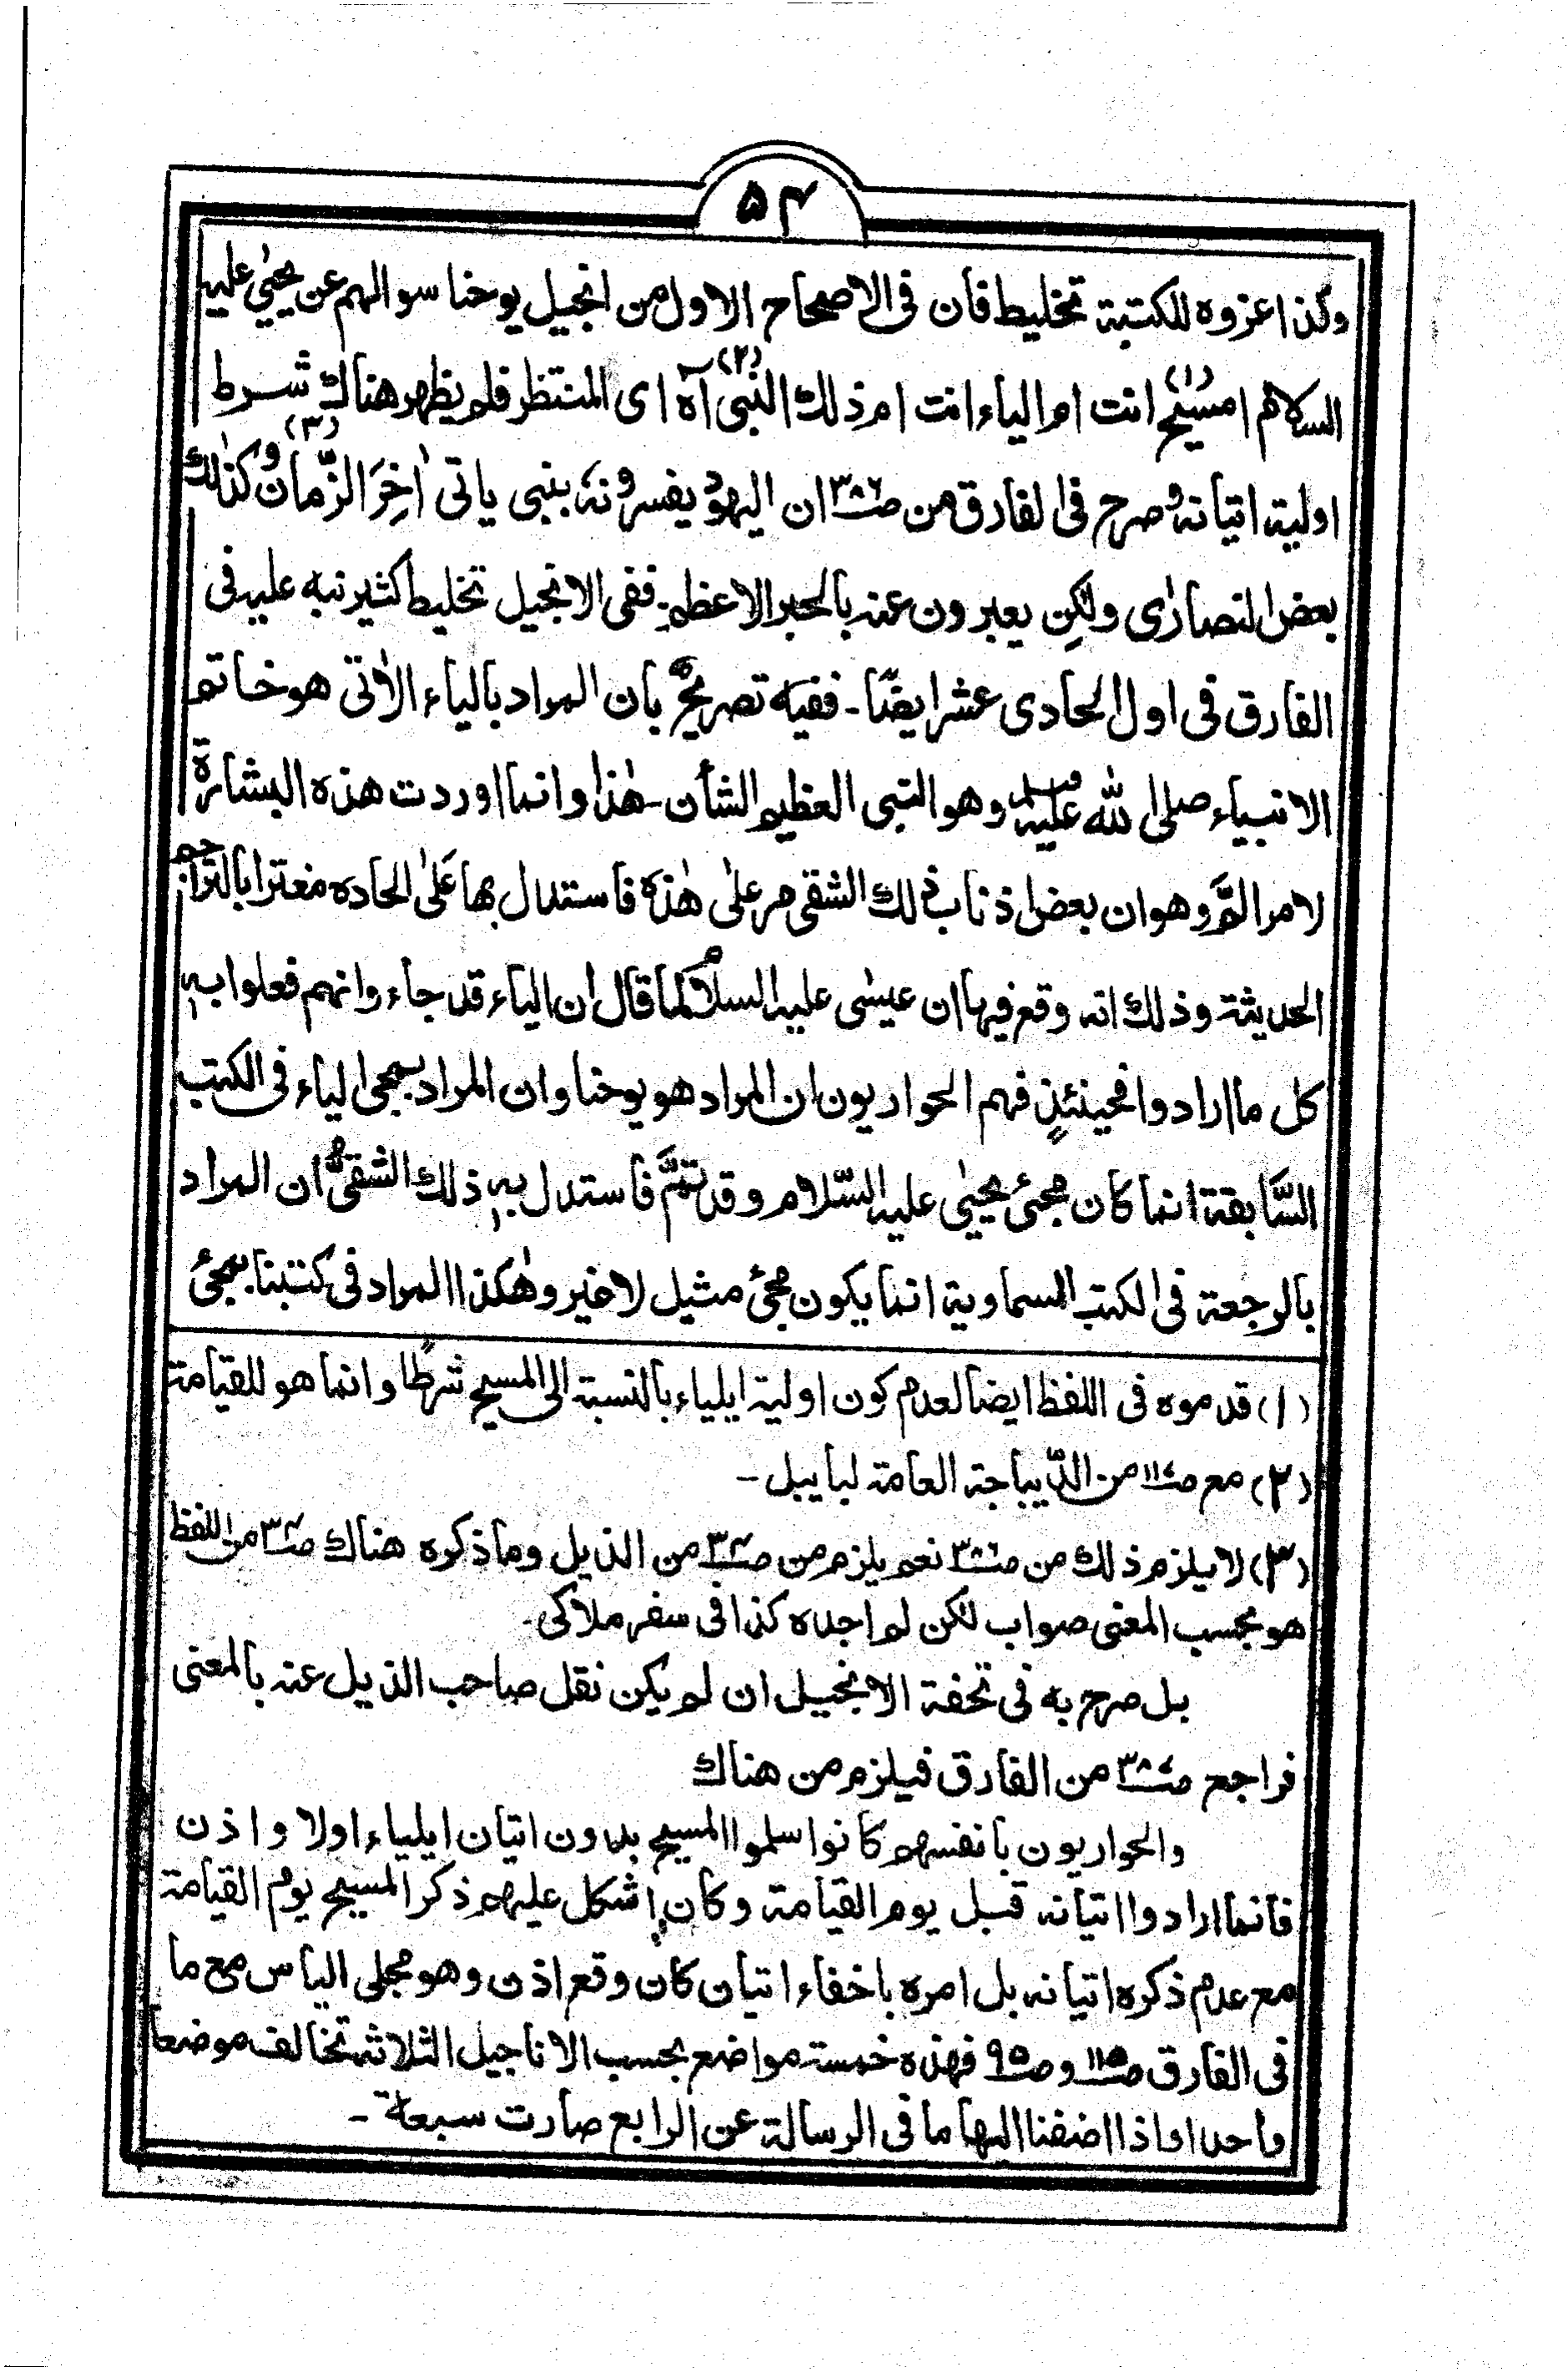 ۵۴
وكذا عزوه للكتبة تخليط فان فى الاصحاح الاول من انجيل يوحنا سوالهم عن يحيىٰ عليه
السلام امسيح(١) انت ام الياء انت ام ذلك النبى(٢) آه اى المنتظر فلم يظهر هناك شرط
اولية اتيانه وصرح فى الفارق من ص٣٨٦ ان اليهود يفسرونه بنبى ياتى اٰخِرَ الزَّمان(٣) وكذلك
بعض النصارٰى ولكِن يعبرون عنه بالحبر الاعظم۔ ففى الانجيل تخليط كثير نبه عليه فى
الفارق فى اول الحادى عشر ايضًا۔ ففيه تصريحٌ بان المراد بالياء الاٰتى هو خاتم
الانبياء صلى الله عليه وسلم وهو النبى العظيم الشأن۔ هٰذا وانما اوردت هذه البشارة
لامر الَمَّ وهو ان بعض اذناب ذلك الشقى مر علىٰ هٰذه فاستدل بها عَلىٰ الحاده مغترا بالتراجم
الحديثة وذلك انه وقع فيها ان عيسٰى عليه السلام لما قال ان الياء قد جاء وانهم فعلوا به
كل ما ارادوا فحينئذٍ فهم الحواريون ان المراد هو يوحنا وان المراد بمجى الياء فى الكتب
السَّابقة انما كان مجئ يحيٰى عليه السَّلام وقد تَمَّ فاستدل به ذلك الشقىُّ ان المراد
بالرجعة فى الكتب السماوية انما يكون مجئ مثيل لا غير وهٰكذا المراد فى كتبنا بمجئ
(١) قد موه فى اللفظ ايضا لعدم كون اولية ايلياء بالنسبة الى المسيح شرطًا وانما هو للقيامة
(٢) مع ص١١ من الدِّيباجة العامة لبايبل۔
(٣) لا يلزم ذلك من نعم يلزم من من الذيل وما ذكره هناك من اللفظ
هو بحسب المعنى صواب لكن لم اجده كذا فى سفر ملاكى۔
بل صرح به فى تحفة الانجيل ان لم يكن نقل صاحب الذيل عنه بالمعنى
فراجع من الفارق فيلزم من هناك
والحواريون بانفسهم كانوا سلموا المسيح بدون اتيان ايلياء اولا واذن
فانما ارادوا اتيانه قبل يوم القيامة وكان اشكل عليهم ذكر المسيح يوم القيامة
مع عدم ذكره اتيانه بل امره باخفاء اتيان كان وقع اذن وهو مجلى الياس مع ما
فى الفارق ص١١٥ وص٩٥ فهذه خمسة مواضع بحسب الاناجيل الثلاثة تخالف موضعا
واحدا واذا اضفنا اليها ما فى الرسالة عن الرابع صارت سبعة۔